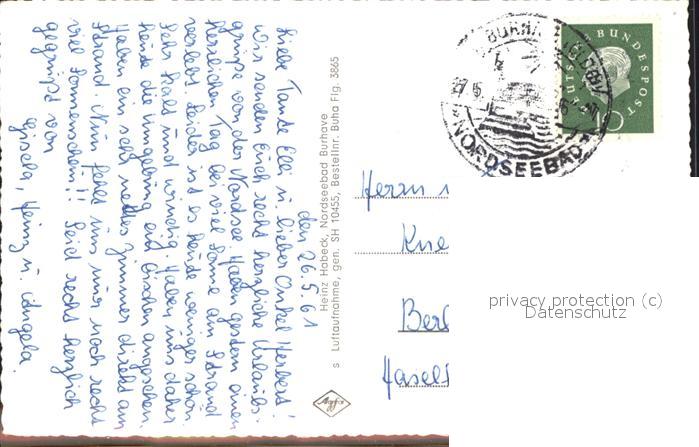 den 26.5.61
Liebe Tante Elli u. lieber Onkel Herbert!
Wir senden Euch recht herzliche Urlaubs-
grüße von der Nordsee. Haben gestern einen
herrlichen Tag bei viel Sonne am Strand
verlebt. Leider ist es heute weniger schön.
Sehr kalt und windig. Haben uns daher
heute die Umgebung ein bischen angesehen.
Haben ein sehr nettes Zimmer direkt am
Strand. Nun fehlt uns nur noch recht
viel Sonnenschein!! Seid recht herzlich
gegrüßt von
Gisela, Heinz u. Angela.
Heinz Habeck, Nordseebad Burhave
s Luftaufnahme, gen. SH 10455, Bestellnr. Buha Flg. 3865
Agfa
NORDSEEBAD
DEUTSCHE BUNDESPOST
Herrn
Kne
Berl
Hasels
privacy protection (c)
Datenschutz